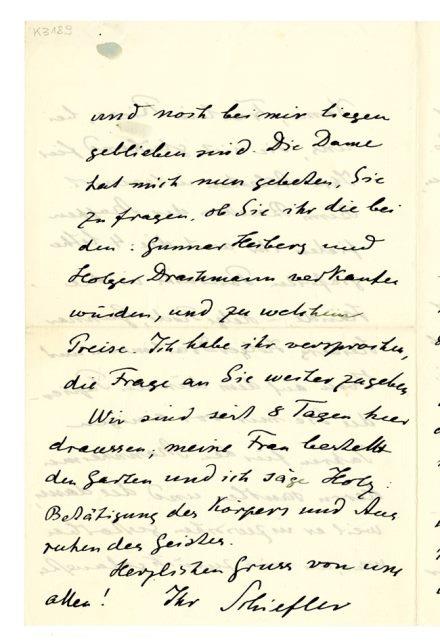 K3189
und noch bei mir liegen
geblieben sind. Die Dame
hat mich nun gebeten, Sie
zu fragen, ob Sie ihr die bei
den: Gunnar Heiberg und
Holger Drachmann verkaufen
würden, und zu welchem
Preise. Ich habe ihr versprochen,
die Frage an Sie weiter zugeben
Wir sind seit 8 Tagen hier
draussen; meine Frau bestellt
den Garten und ich säge Holz:
Betätigung des Körpers und Aus
ruhen des Geistes.
Herzlichen Gruss von uns
allen! Ihr Schiefler